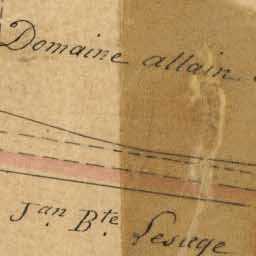 Domaine allain
Jan. Bte. Lesage